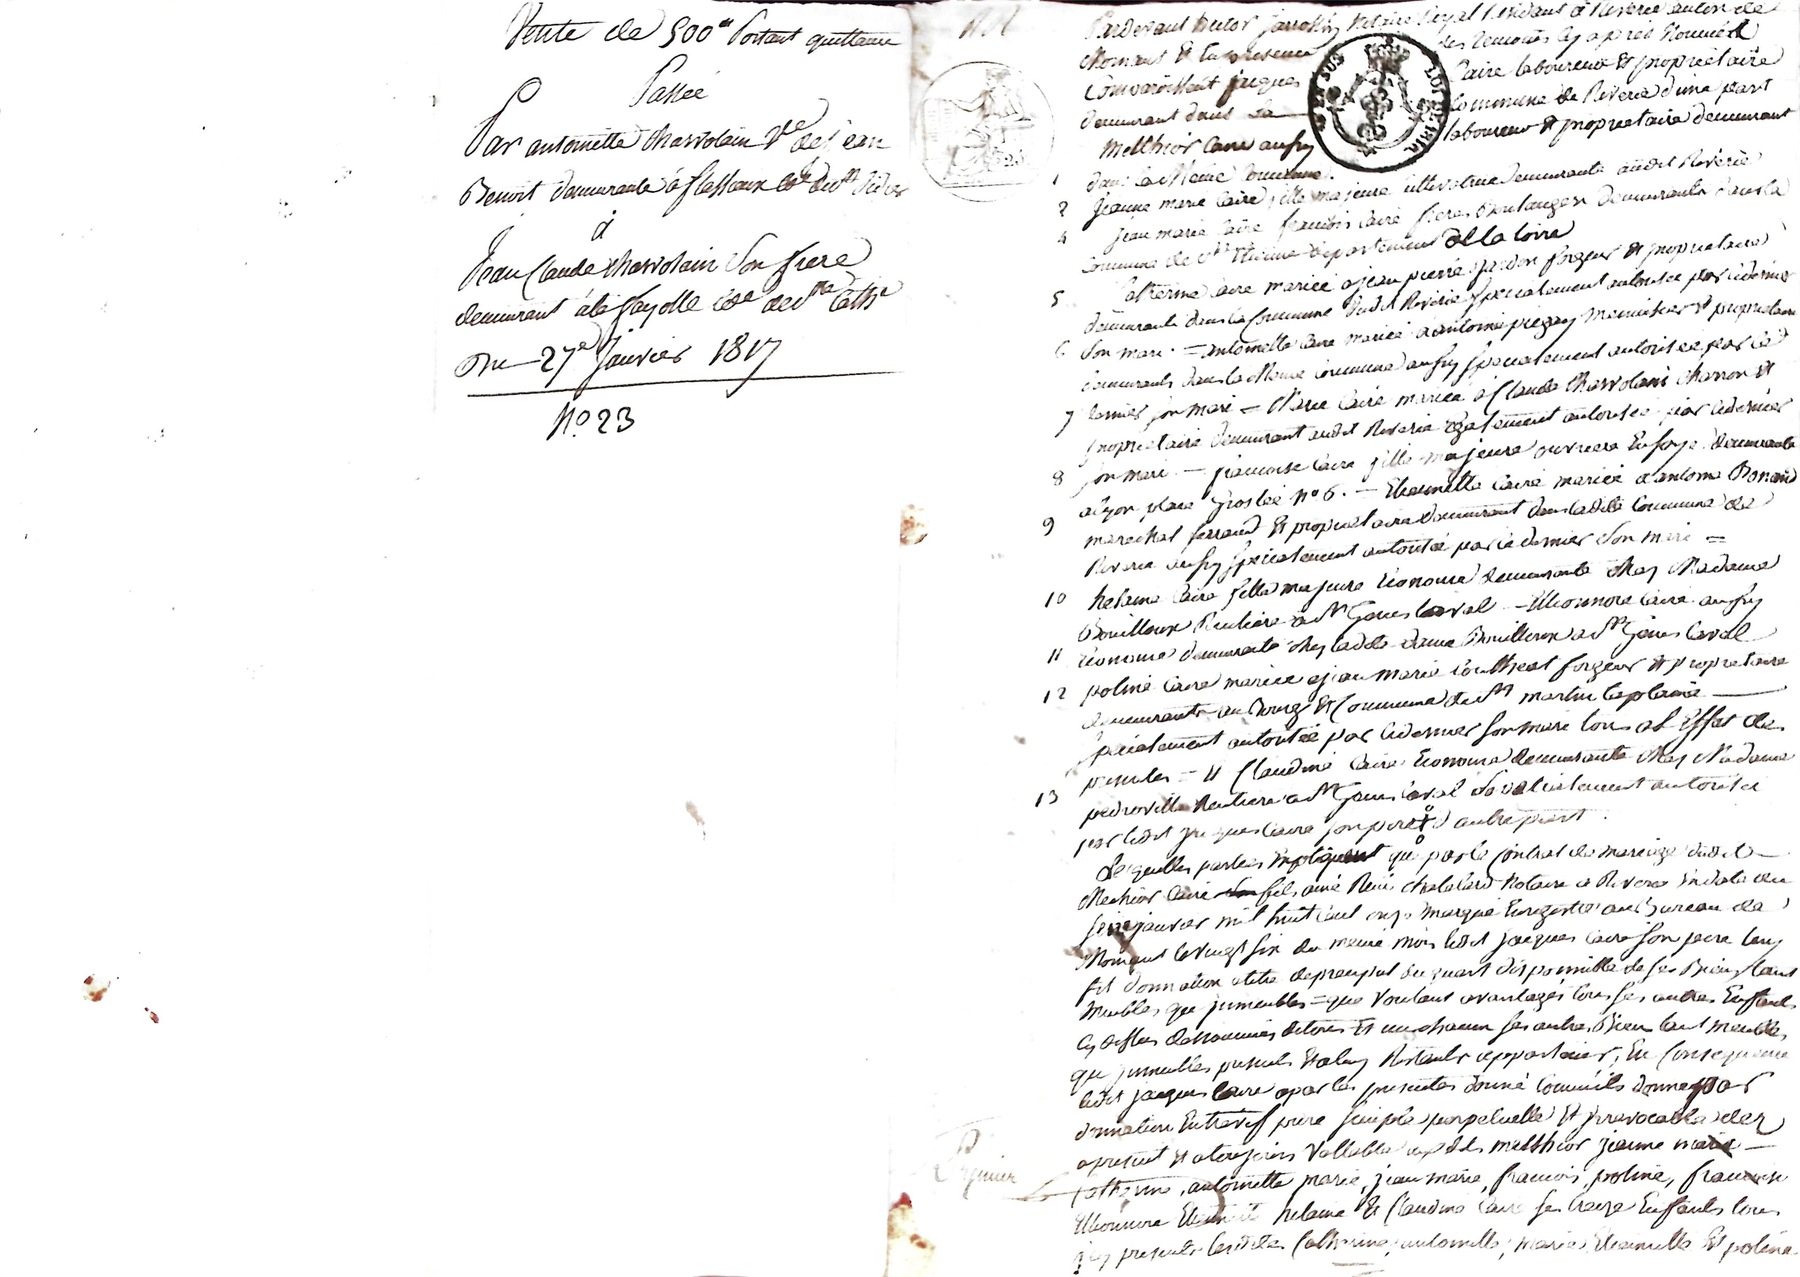 Vente de 500 Portant quittance
Passée
Par antoinette Charvolain Ve de jean
Benoit demeurante à flassieux Cne de St Didier
à
Jean Claude Charvolain son frere
demeurant à la fayolle Cne de Ste Cathe
Du 27e Janvier 1817
No. 23
Pardevant notaire Royal Résidant à Riverie canton de
Mornant Et En presence des temoins cy après Nommés
Comparaissent jacques Caire laboureur Et proprietaire
demeurant dans la Commune de Riverie d'une part
1 Melchior Caire aussy laboureur Et proprietaire demeurant
dans la Même Commune.
2 Jeanne marie Caire fille majeure demeurante audit Riverie
4 Jean marie Caire françois Caire freres Boulangers demeurants dans la
Commune de St Etienne Departement de la Loire
5 Catherine Caire mariée a jean pierre forgeur Et proprietaire
demeurante dans la Commune dudit Riverie specialement autorisée par ce dernier
6 son mari = antoinette Caire mariée a antoine Menuisier Et proprietaire
demeurants dans la Meme Commune aussy specialement autorisée par ce
7 dernier son mari = Marie Caire mariée à Claude Charvolain charron Et
proprietaire demeurant audit Riverie Egalement autorisée par ce dernier
8 son mari. — françoise Caire fille majeure ouvriere En soye demeurante
a Lyon place Grollée No 6. — Etiennette Caire mariée a antoine Bonand
9 marechal ferrand Et proprietaire demeurant dans ladite Commune de
Riverie aussy specialement autorisée par ce dernier son mari =
10 helaine Caire fille majeure Econome demeurante chez Madame
Bouilloux Rentiere a St Genis laval — Eleonnore Caire aussy
11 Econome demeurante chez ladite dame Bouilloux a St Genis laval
12 poline Caire mariée a jean marie forgeur Et proprietaire
demeurante au Bourg Et Commune de St martin laplaine —
specialement autorisée par ce dernier son mari tous a l'Effet des
13 presentes = Et Claudine Caire Econome demeurante chez Madame
Rentiere a St Genis laval specialement autorisée
par ledit jacques Caire son pere d'autre part.
Lesquelles parties Expliquent que par le Contrat de mariage dudit —
Melchior Caire fils ainé Reçu Chatelard Notaire a Riverie En date du
seize janvier mil huit cent onze Enregistré au Bureau de
Mornant le vingt six du meme mois ledit jacques Caire son pere luy
fit donnation a titre de preciput du quart disponnible de ses Biens tant
Meubles que jmmeubles = que voulant avantager tous ses autres Enfants
cy dessus denommés de tous Et un chacun ses autres Biens tant meubles
que jmmeubles presents Et a luy Restants appartenir, En Consequence
ledit jacques Caire a par les presentes donné Comme il donne par
donnation Entrevif pure simple perpetuelle Et jrrevocable des
apresent Et a toujours vallable auxdits melchior jeanne marie —
Catherine, antoinette marie, jean marie, francois, poline, francoise
Eleonnore Etiennette helaine Et Claudine Caire ses treize Enfants tous
presents lesdites Catherine, antoinette, marie, Etiennette Et poline